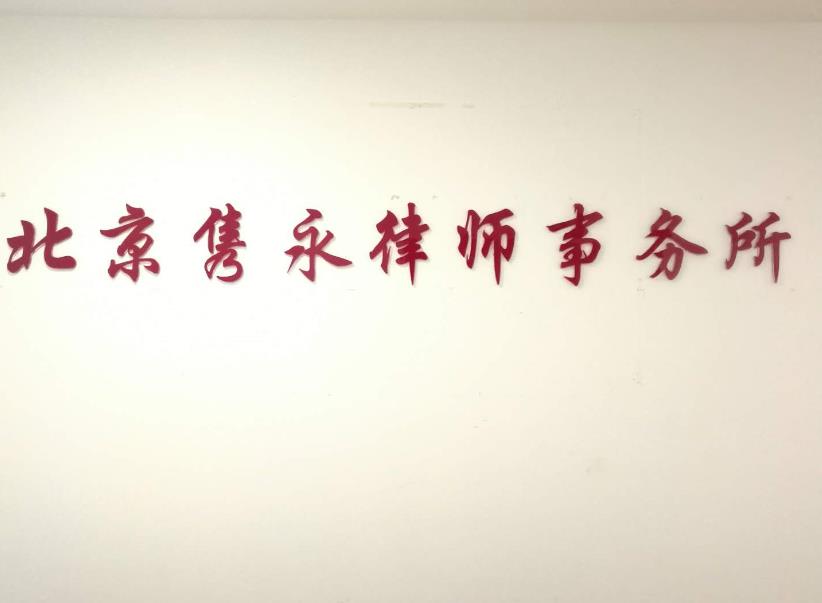 北京隽永律师事务所